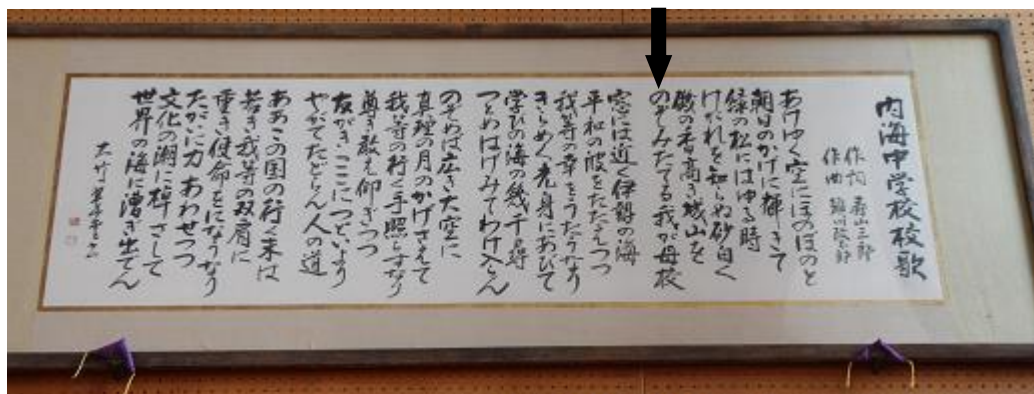 内海中学校校歌
作詞 森山三郎
作曲
あけゆく空にほのぼのと
朝日のかげに輝きて
緑の松にはゆる時
けがれを知らぬ砂白く
磯の香高き城山を
のぞみたてる我が母校
窓には近く伊勢の海
平和の波をたたえつつ
我等の幸をうたうなり
きらめく光身にあびて
学びの海の幾千尋
つとめはげみてわけ入らん
のぞめば広き大空に
真理の月のかげさえて
我等の行く手照らすなり
尊き教え仰ぎつつ
友がきここにつどいより
やがてたどらん人の道
ああこの国の行く末は
若き我等の双肩に
重き使命をになうなり
たがいに力あわせつつ
文化の潮に棹さして
世界の海に漕ぎ出でん